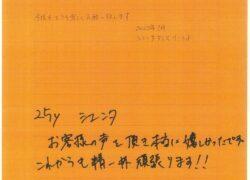 今後ともよろしくお願い致します
25y シエンタ
お客様の声を頂き本当に嬉しかったです
これからも精一杯頑張ります!!